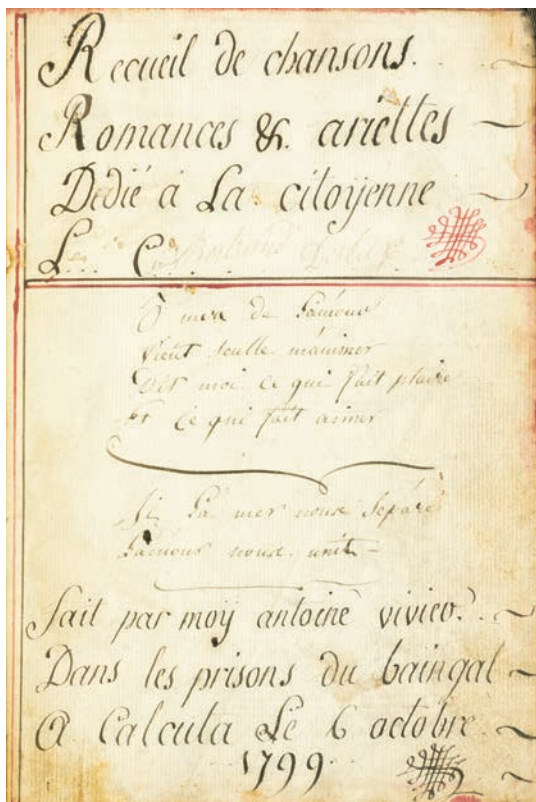 Recueil de chansons.
Romances &. ariettes
Dédié a La citoÿenne
L... C...
Ô mere de Lamour
Vient seulle m'animer
Dit moi ce qui fait plaire
Et Ce qui fait aimer
Si La mer nous Séparé
L'amour nous unit
fait par moÿ antoine vivier.
Dans les prisons du baingal
A Calcuta Le 6 octobre
1799